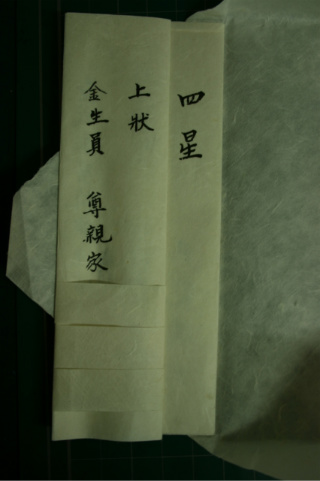 四星
上狀
金生員 尊親家